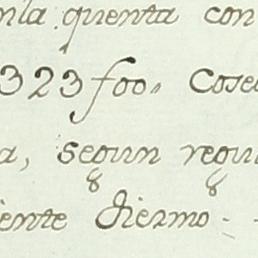 nla quenta con
323 foo, Cose
a, segun regu
iente diezmo